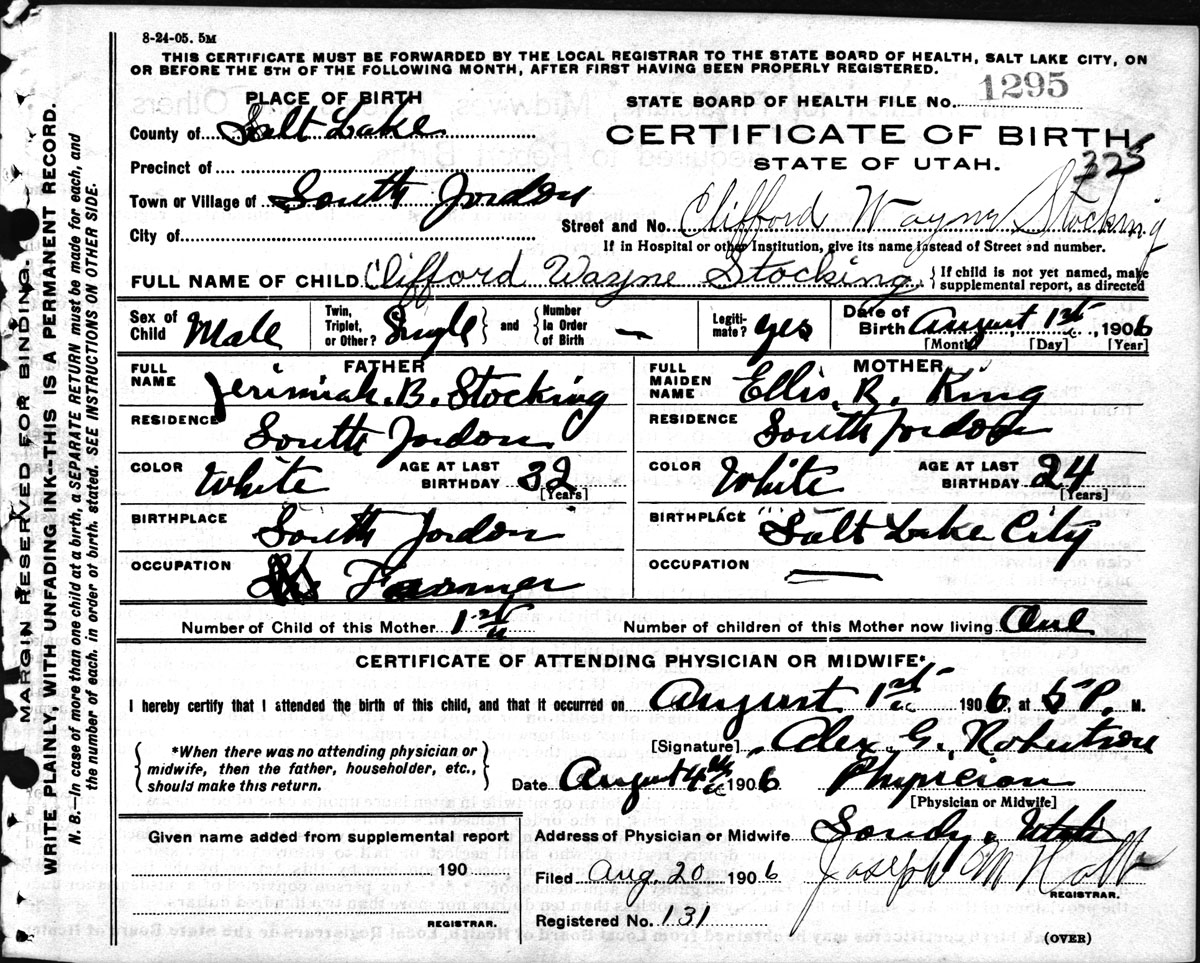 8-24-05. 5M
THIS CERTIFICATE MUST BE FORWARDED BY THE LOCAL REGISTRAR TO THE STATE BOARD OF HEALTH, SALT LAKE CITY, ON
OR BEFORE THE 5TH OF THE FOLLOWING MONTH, AFTER FIRST HAVING BEEN PROPERLY REGISTERED.
PLACE OF BIRTH
STATE BOARD OF HEALTH FILE NO. 1295
County of Salt Lake
CERTIFICATE OF BIRTH
STATE OF UTAH.
325
Precinct of
Town or Village of South Jordon
Street and No. Clifford Wayne Stocking
City of
If in Hospital or other Institution, give its name instead of Street and number.
FULL NAME OF CHILD Clifford Wayne Stocking { If child is not yet named, make
supplemental report, as directed
Sex of Child Male
Twin, Triplet, or Other? Single } and { Number In Order of Birth —
Legiti- mate? yes
Date of Birth August 1st, 1906
[Month] [Day] [Year]
FATHER
MOTHER
FULL NAME Jerimiah. B. Stocking
FULL MAIDEN NAME Ellis. R. King
RESIDENCE South Jordon
RESIDENCE South Jordon
COLOR White AGE AT LAST BIRTHDAY 32 [Years]
COLOR White AGE AT LAST BIRTHDAY 24 [Years]
BIRTHPLACE South Jordon
BIRTHPLACE Salt Lake City
OCCUPATION Farmer
OCCUPATION —
Number of Child of this Mother 1st
Number of children of this Mother now living One
CERTIFICATE OF ATTENDING PHYSICIAN OR MIDWIFE*
I hereby certify that I attended the birth of this child, and that it occurred on August 1st 1906, at 5 P. M.
{ *When there was no attending physician or
midwife, then the father, householder, etc.,
should make this return. }
[Signature] Alex. G. Robertson
Date August 4th 1906 Physician
[Physician or Midwife]
Given name added from supplemental report
Address of Physician or Midwife Sandy, Utah
190
Filed Aug 20 1906 Joseph M Holt
REGISTRAR.
REGISTRAR.
Registered No. 131
(OVER)
MARGIN RESERVED FOR BINDING.
WRITE PLAINLY, WITH UNFADING INK—THIS IS A PERMANENT RECORD.
N. B.—In case of more than one child at a birth, a SEPARATE RETURN must be made for each, and
the number of each, in order of birth, stated. SEE INSTRUCTIONS ON OTHER SIDE.